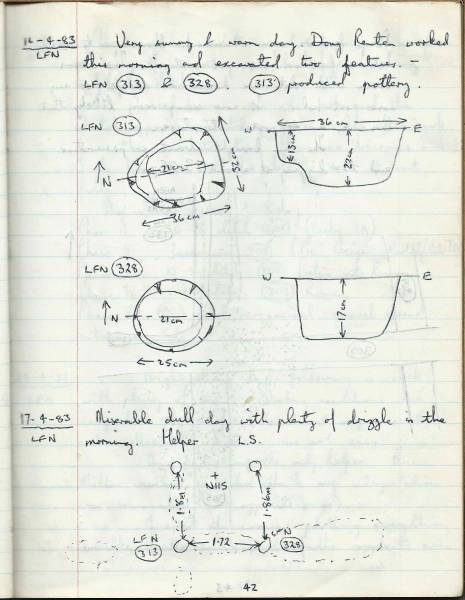 16-4-83
LFN
Very sunny & warm day. Doug Renten worked
this morning and excavated two features. -
LFN 313 & 328. 313 produced pottery.
LFN 313
21cm
32cm
N
36cm
36cm
E
13cm
22cm
LFN 328
N
21cm
25cm
W
E
17.5
17-4-83
LFN
Miserable dull day with plenty of drizzle in the
morning. Helper L.S.
+
N115
1.86m
LFN
313
1.72
LFN
328
42